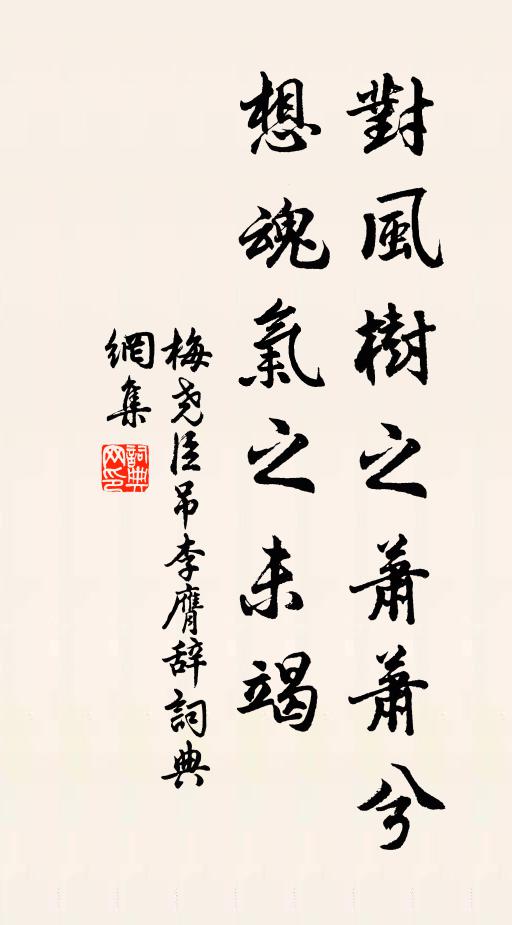 對風樹之蕭蕭兮
想魂氣之未竭
梅尧臣吊李膺辞詞典
網集
詞典
网印